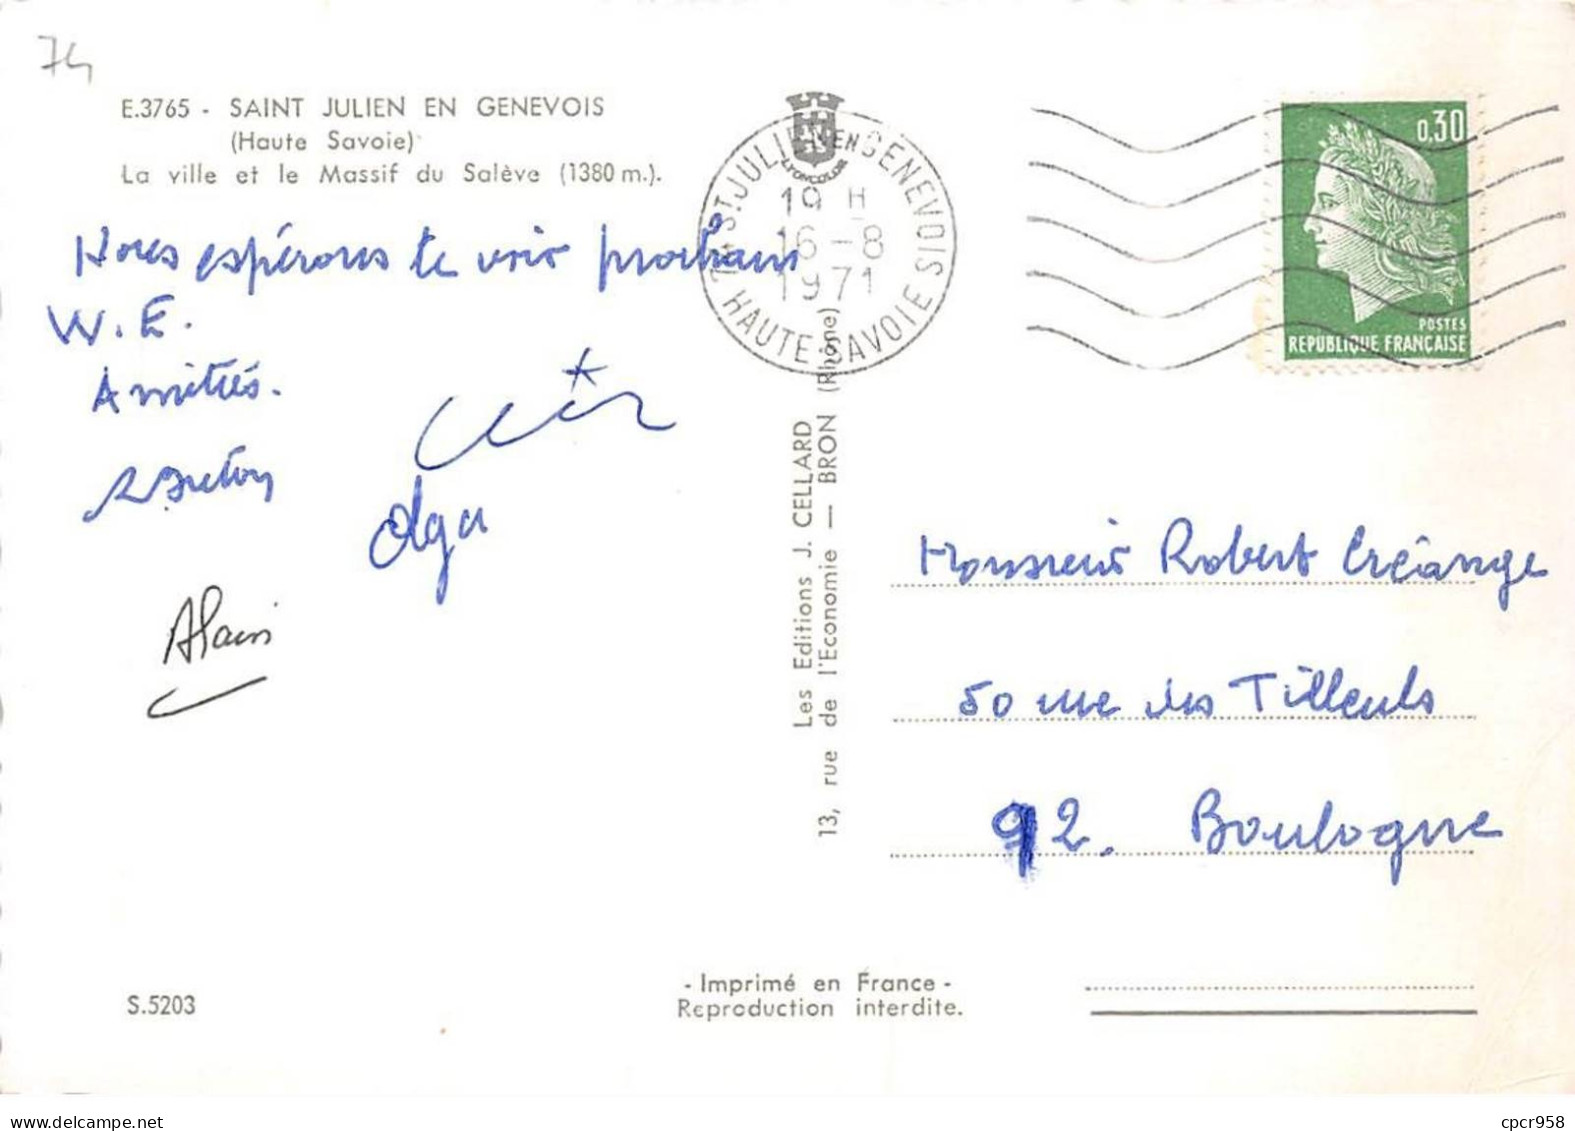 74
E.3765 - SAINT JULIEN EN GENEVOIS
(Haute Savoie)
La ville et le Massif du Salève (1380 m.).
Nous espérons te voir prochain
W.E.
Amitiés.
Olga
Alain
LYONCOLOR
74 ST JULIEN EN GENEVOIS
19 H
16 - 8
1971
HAUTE SAVOIE
0,30
POSTES
REPUBLIQUE FRANÇAISE
Les Editions J. CELLARD
13, rue de l'Economie — BRON (Rhône)
Monsieur Robert Créange
50 rue des Tilleuls
92. Boulogne
S.5203
- Imprimé en France -
Reproduction interdite.
cpcr958